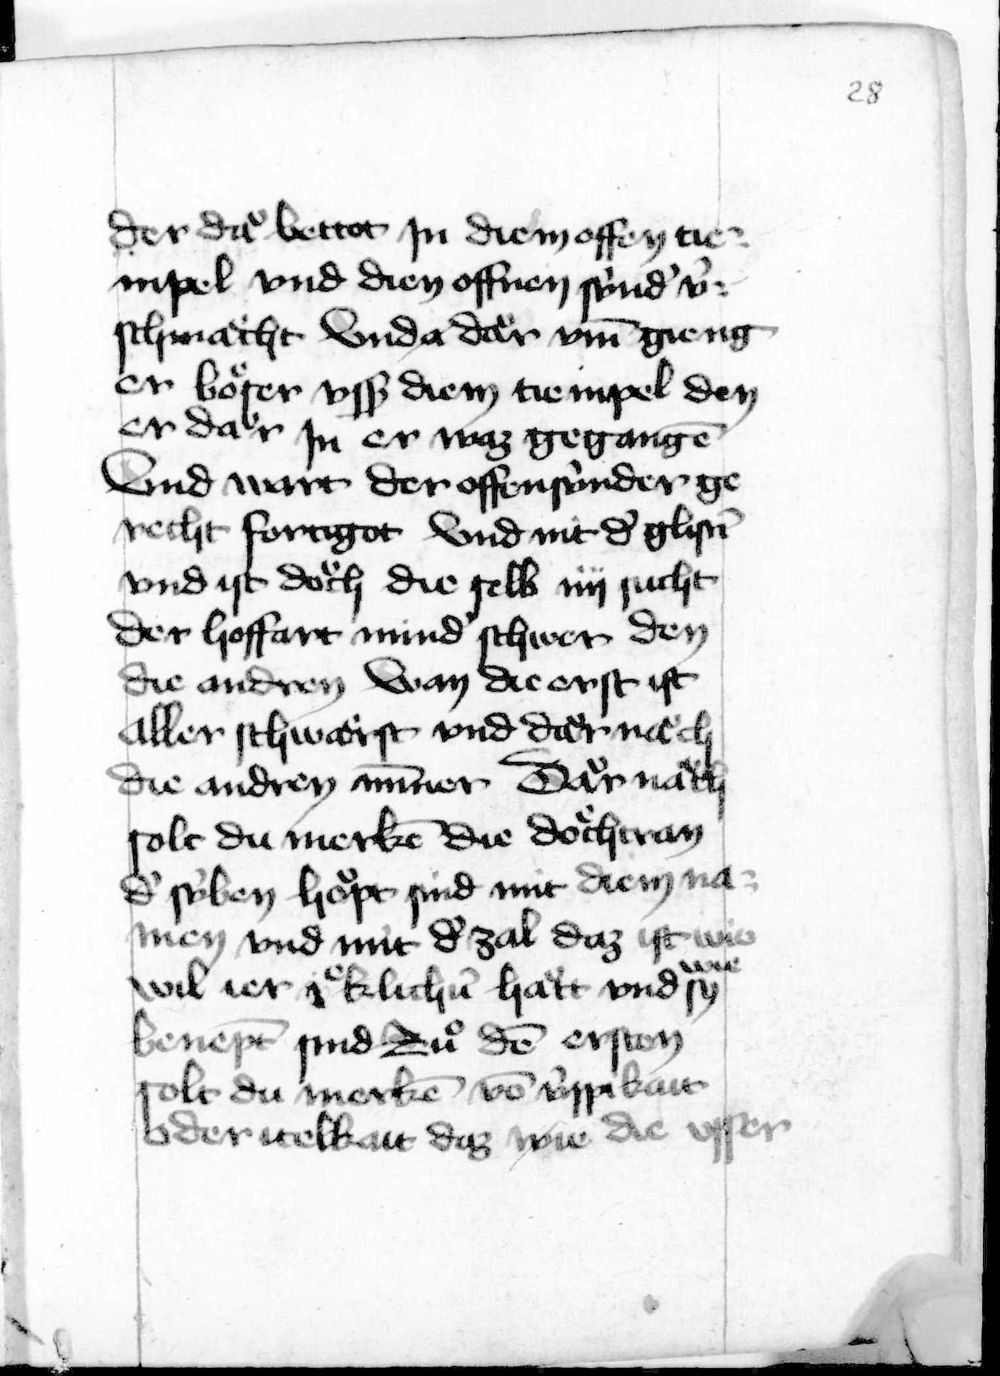 28
der daͦ bettot In diem offen tie⸗
mpel vnd dien offnen sv́nd' v́⸗
schmaͤcht Vnd a daͤr vm̄ gieng
er boͤser vſſ diem tiempel den
er daͤr In er waz gegangē
Vnd wart der offensv́nder ge
recht fertigot Vnd nit d' glisn̄
vnd ist doͤch die selb iiij sucht
der hoffart mind' schwer den
die andren Wan die erst ist
aller schwaͤrst vnd daͤr naͤch
die andren im̄er Daͤr naͤch
solt du merkē die doͤchtran
d' sv́ben hoͤpt sind mit diem na⸗
men vnd mit d' zal daz ist wie
wil ier ieͤklichū haͤtt vnd wie sy
benept̄ sind Zuͦ dē ersten
solt du merkē vō v́ppikait
oder itelkait daz wie die vsser